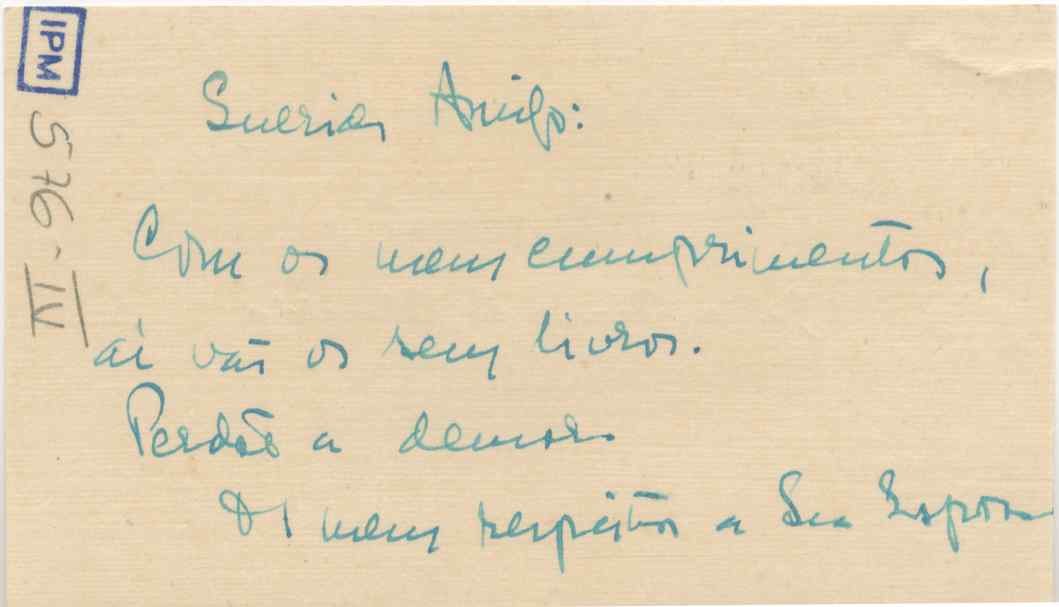 IPM
5576-IV
Querido Amigo:
Com os meus cumprimentos,
aí vão os seus livros.
Perdão a demora.
meus respeitos a Sua Esposa